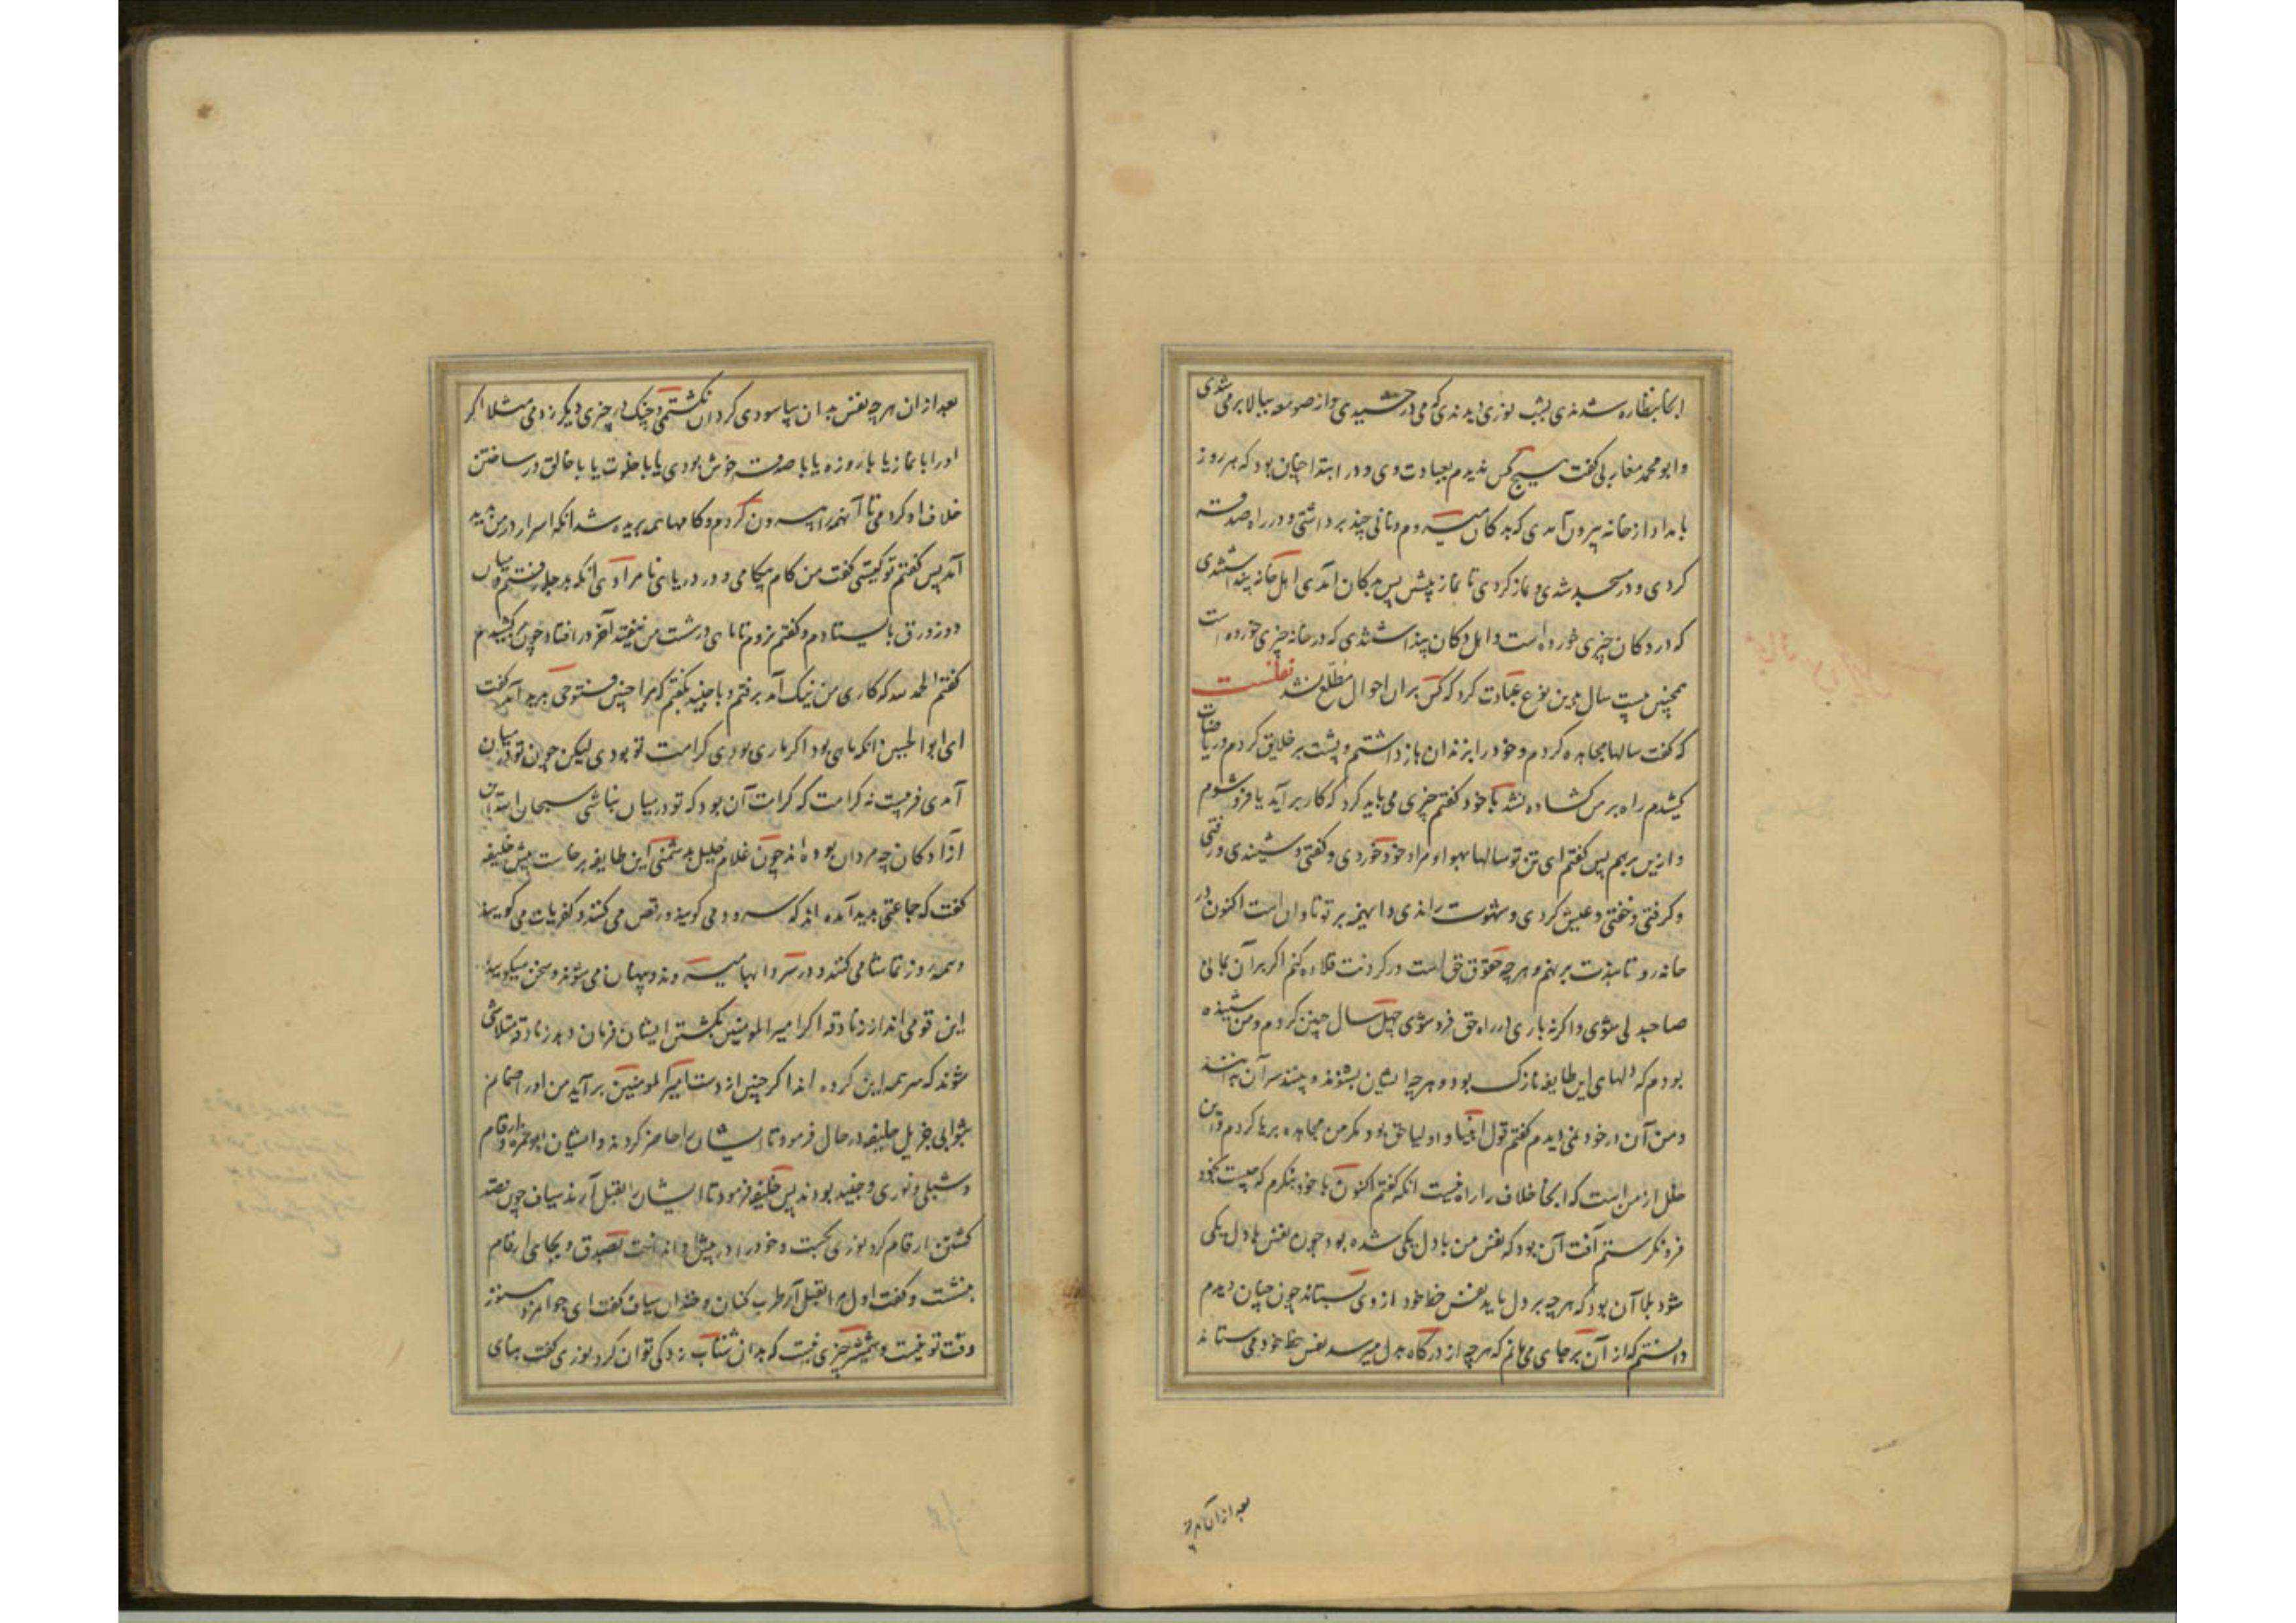 انجا بنظاره شدندی بشب نوری دیدندی که می درخشیدی و از صومعه ببالا بر می شدی
و ابو محمد مغازلی گفت هیچ کس ندیدم بعبادت وی و در ابتدا چنان بود که هر روز
بامداد از خانه بیرون آمدی که بدکان میروم و نانی چند برداشتی و در راه صدقه
کردی و در مسجد شدی و نماز کردی تا نماز پیشین پس بدکان آمدی اهل خانه پنداشتندی
که در دکان چیزی خورده است و اهل دکان پنداشتندی که در خانه چیزی خورده است
همچنین بیست سال بدین نوع عبادت کرد که کس بران احوال مطلع نشد نقلست
که گفت سالها مجاهده کردم و خود را بزندان باز داشتم و پشت بر خلایق کردم و ریاضات
کشیدم راه بر من گشاده نشد با خود گفتم چیزی می باید کرد که کار بر آید یا فرو شوم
و ازین برهم پس گفتم ای تن تو سالها بهوا و مراد خود خوردی و گفتی و شنیدی و رفتی
و گرفتی و خفتی و عیش کردی و شهوت راندی و این همه بر تو تاوان است اکنون در
خانه رو تا بندت بر نهم و هر چه حقوق حق است در گردنت قلاده کنم اگر بر آن بمانی
صاحب دلی شوی و اگر نه باری در راه حق فرو شوی چهل سال چنین کردم و من شنیده
بودم که دلهای این طایفه نازک بود و هر چه ایشان بشنوند و بینند سر آن بدانند
و من آن در خود نمی دیدم گفتم قول انبیا و اولیا حق بود مگر من مجاهده بریا کردم و این
خلل از من است که انجا خلاف را راه نیست انگه گفتم اکنون با خود بنگرم که چیست بخود
فرو نگرستم آفت آن بود که نفس من با دل یکی شده بود چون نفس با دل یکی
شود بلا آن بود که هر چه بر دل تابد نفس حظ خود از وی بستاند چون چنان دیدم
دانستم که از آن بر جای می مانم که هر چه از درگاه بدل میرسد نفس حظ خود می ستاند
بعد از آن هر چه
بعد از ان هر چه نفس بدان بیاسودی گرد آن نگشتمی و چنگ در چیزی دیگر زدمی مثلا اگر
او را با نماز یا با روزه یا با صدقه خوش بودی یا با خلوت یا با خلق در ساختن
خلاف او کردمی تا آنهمه را بیرون کردم و کامها همه بریده شد انگه اسرار در من پدید
آمد پس گفتم تو کیستی گفت من در کان بیکامی و در دریای نامرادی انگه بدجله رفتم میان
دو زورق بایستادم و گفتم نروم تا ماهی در شست من نیفتد آخر در افتاد چون بر کشیدم
گفتم الحمد لله که کاری من نیک آمد برفتم و با جنید بگفتم که مرا چنین فتوحی پدید آمد گفت
ای ابوالحسین انکه ماهی بود اگر ماری بودی کرامت تو بودی لیکن چون تو در میان
آمدی فریبست نه کرامت که کرامت آن بود که تو در میان نباشی سبحان الله این
آزادگان چه مردان بوده اند چون غلام خلیل بدشمنی این طایفه برخاست پیش خلیفه
گفت که جماعتی پدید آمده اند که سرود می گویند و رقص می کنند و کفریات می گویند
و همه روز تماشا می کنند و در سردابها میروند و پنهان می شوند و سخن میگویند
این قومی اند از زنادقه اگر امیر المومنین بکشتن ایشان فرمان دهد زنادقه متلاشی
شوند که سر همه این گروه اند اگر چنین از دست امیر المومنین بر آید من او را ضامنم
بثوابی جزیل خلیفه در حال فرمود تا ایشان را حاضر کردند و ایشان ابو حمزه و ارقام
و شبلی و نوری و جنید بودند پس خلیفه فرمود تا ایشان را بقتل آرند سیاف چون قصد
کشتن ارقام کرد نوری بجست و خود را در پیش او انداخت بصدق و بجای ارقام
بنشست و گفت اول مرا بقتل آر طرب کنان و خندان سیاف گفت ای جوامرد هنوز
وقت تو نیست و شمشیر چیزی نیست که بدان شتاب زدگی توان کرد نوری گفت بنای